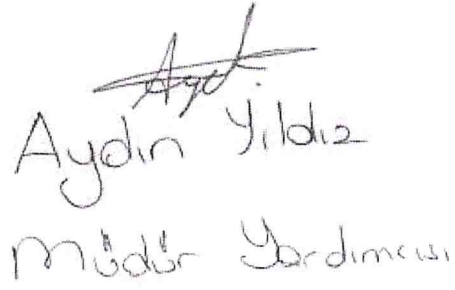 Aydın Yıldız
Müdür Yardımcısı